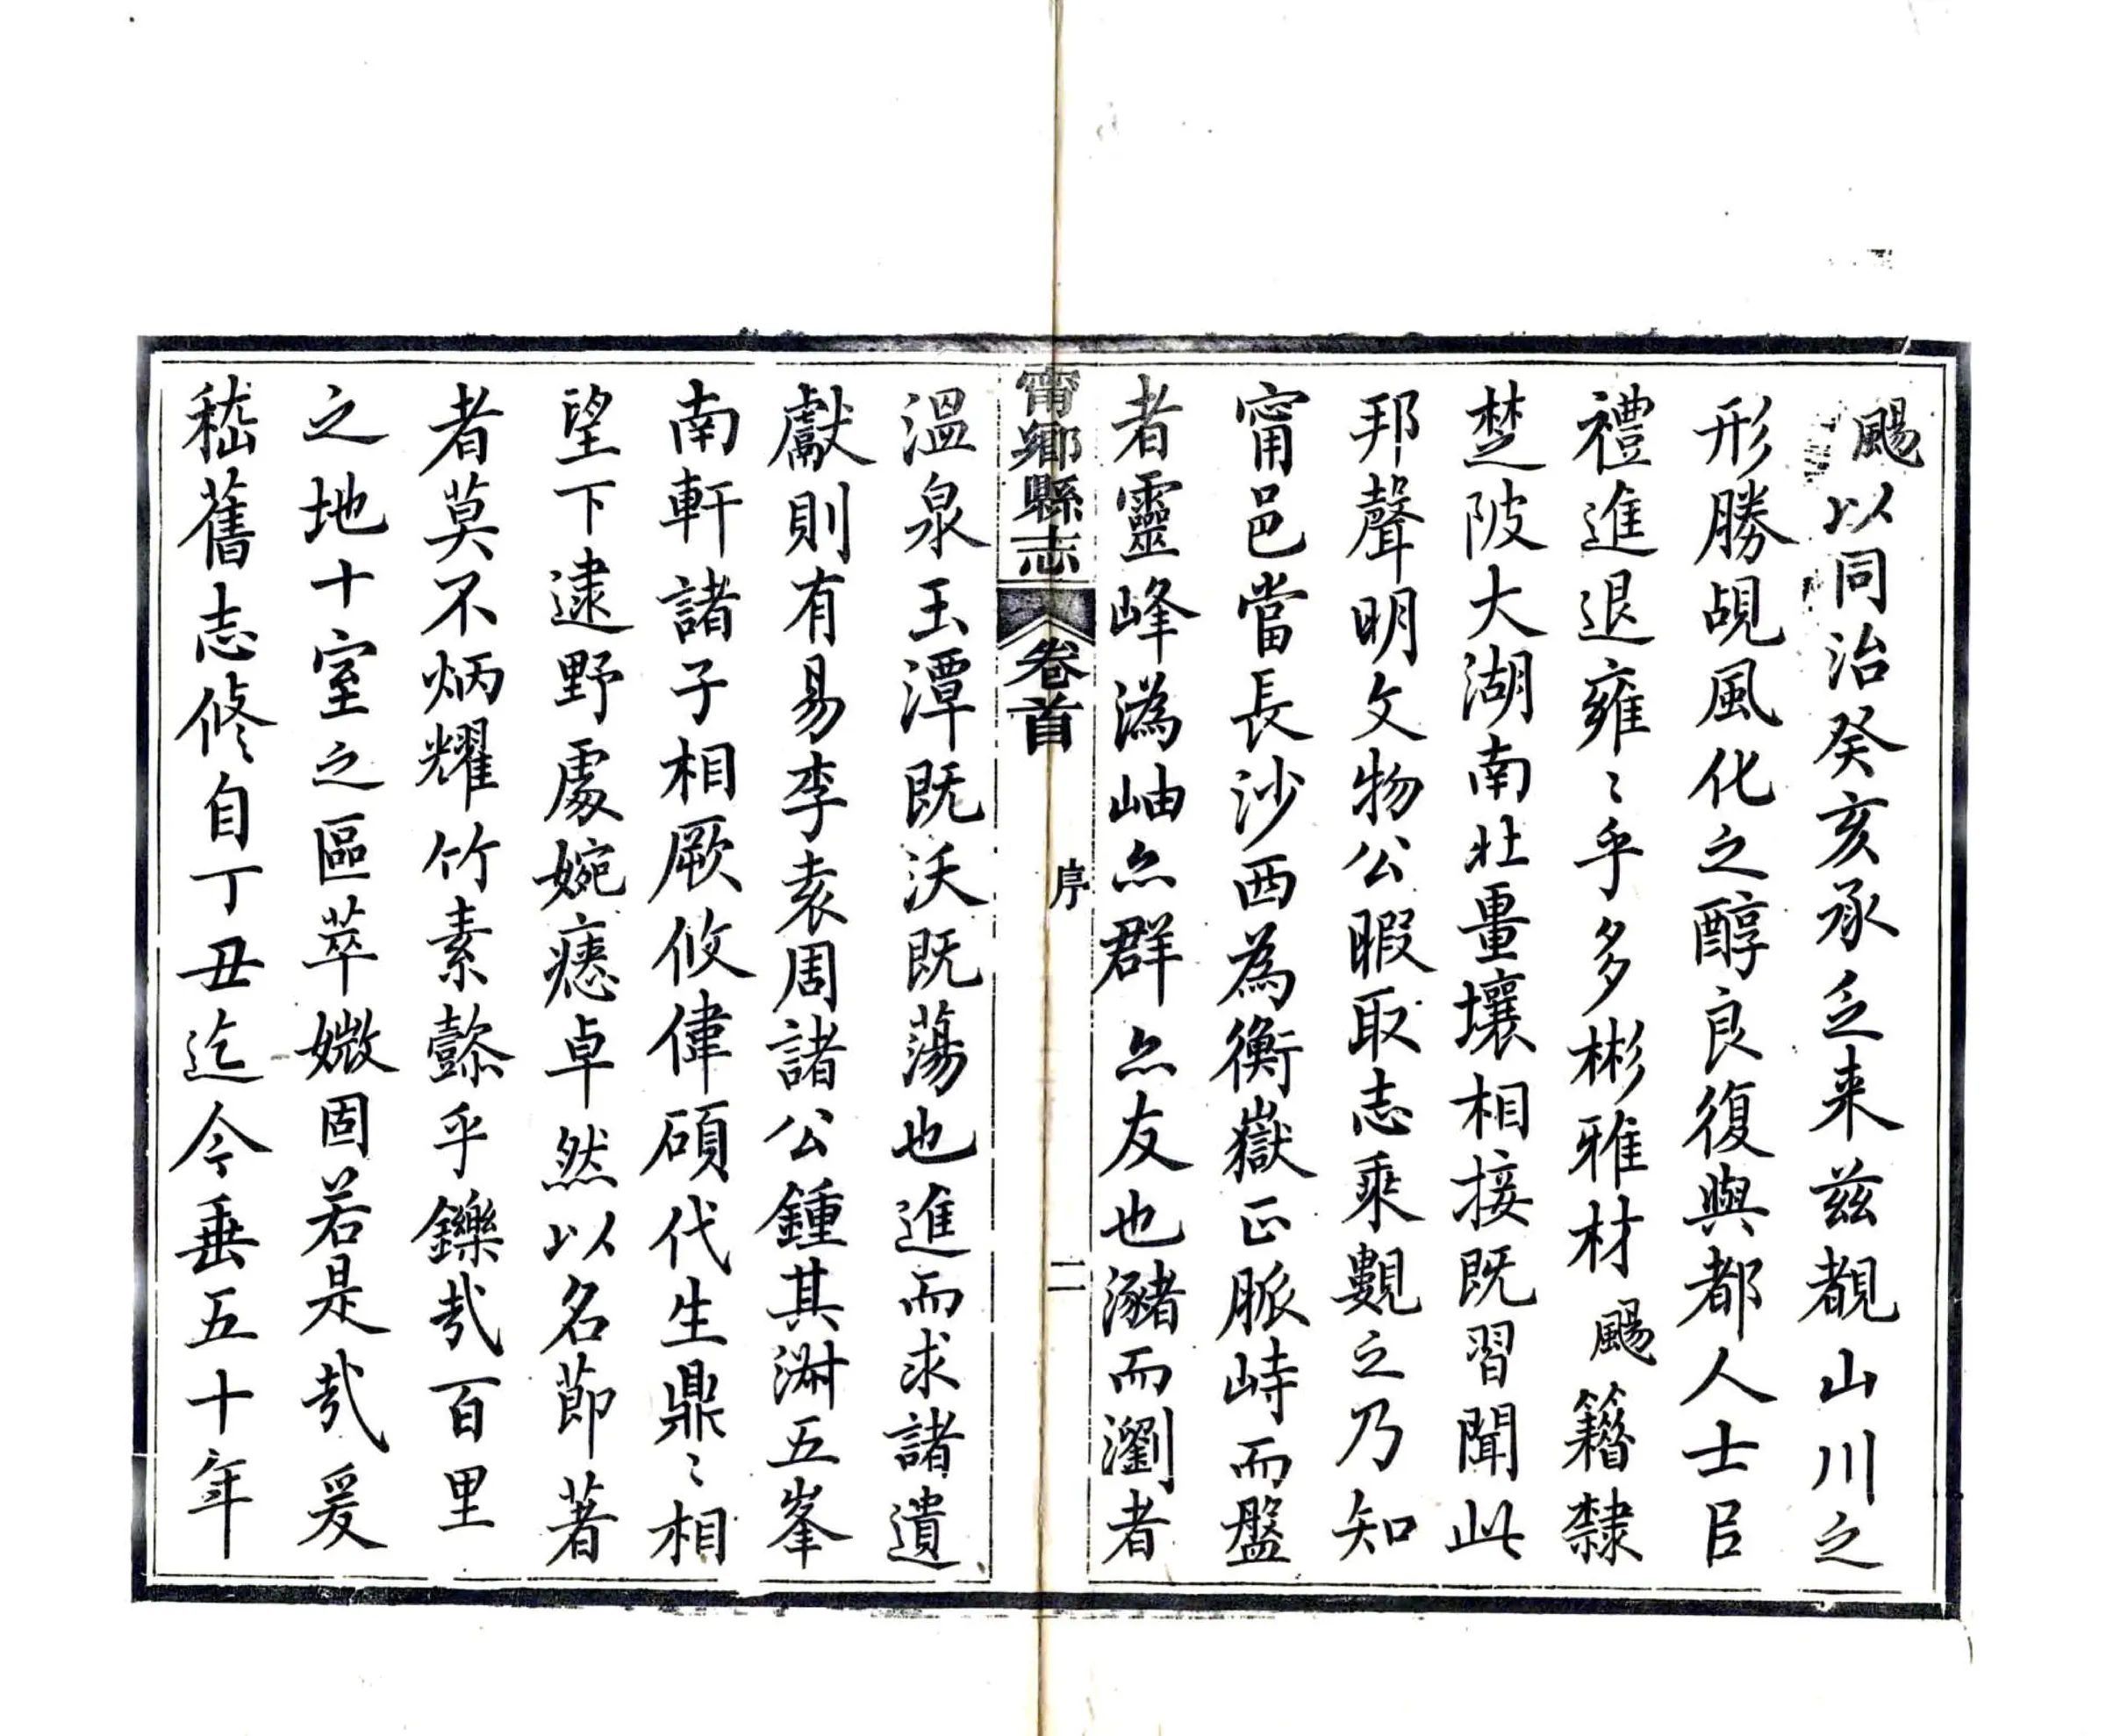 颺以同治癸亥承乏来茲覩山川之
形勝覘風化之醇良復與都人士臣
禮進退雍〻乎多彬雅材颺籍隸
楚陂大湖南壯畺壤相接既習聞此
邦聲明文物公暇取志乘觀之乃知
甯邑當長沙西為衡嶽正脈峙而盤
者靈峰溈岫亝群亝友也瀦而瀏者
甯鄉縣志
卷首
序
二
溫泉玉潭既沃既蕩也進而求諸遺
獻則有易李袁周諸公鍾其淵五峯
南軒諸子相厥攸偉碩代生鼎〻相
望下逮野處婉㥣卓然以名節著
者莫不炳耀竹素懿乎鑠哉百里
之地十室之區萃媺固若是哉爰
嵇舊志修自丁丑迄今垂五十年